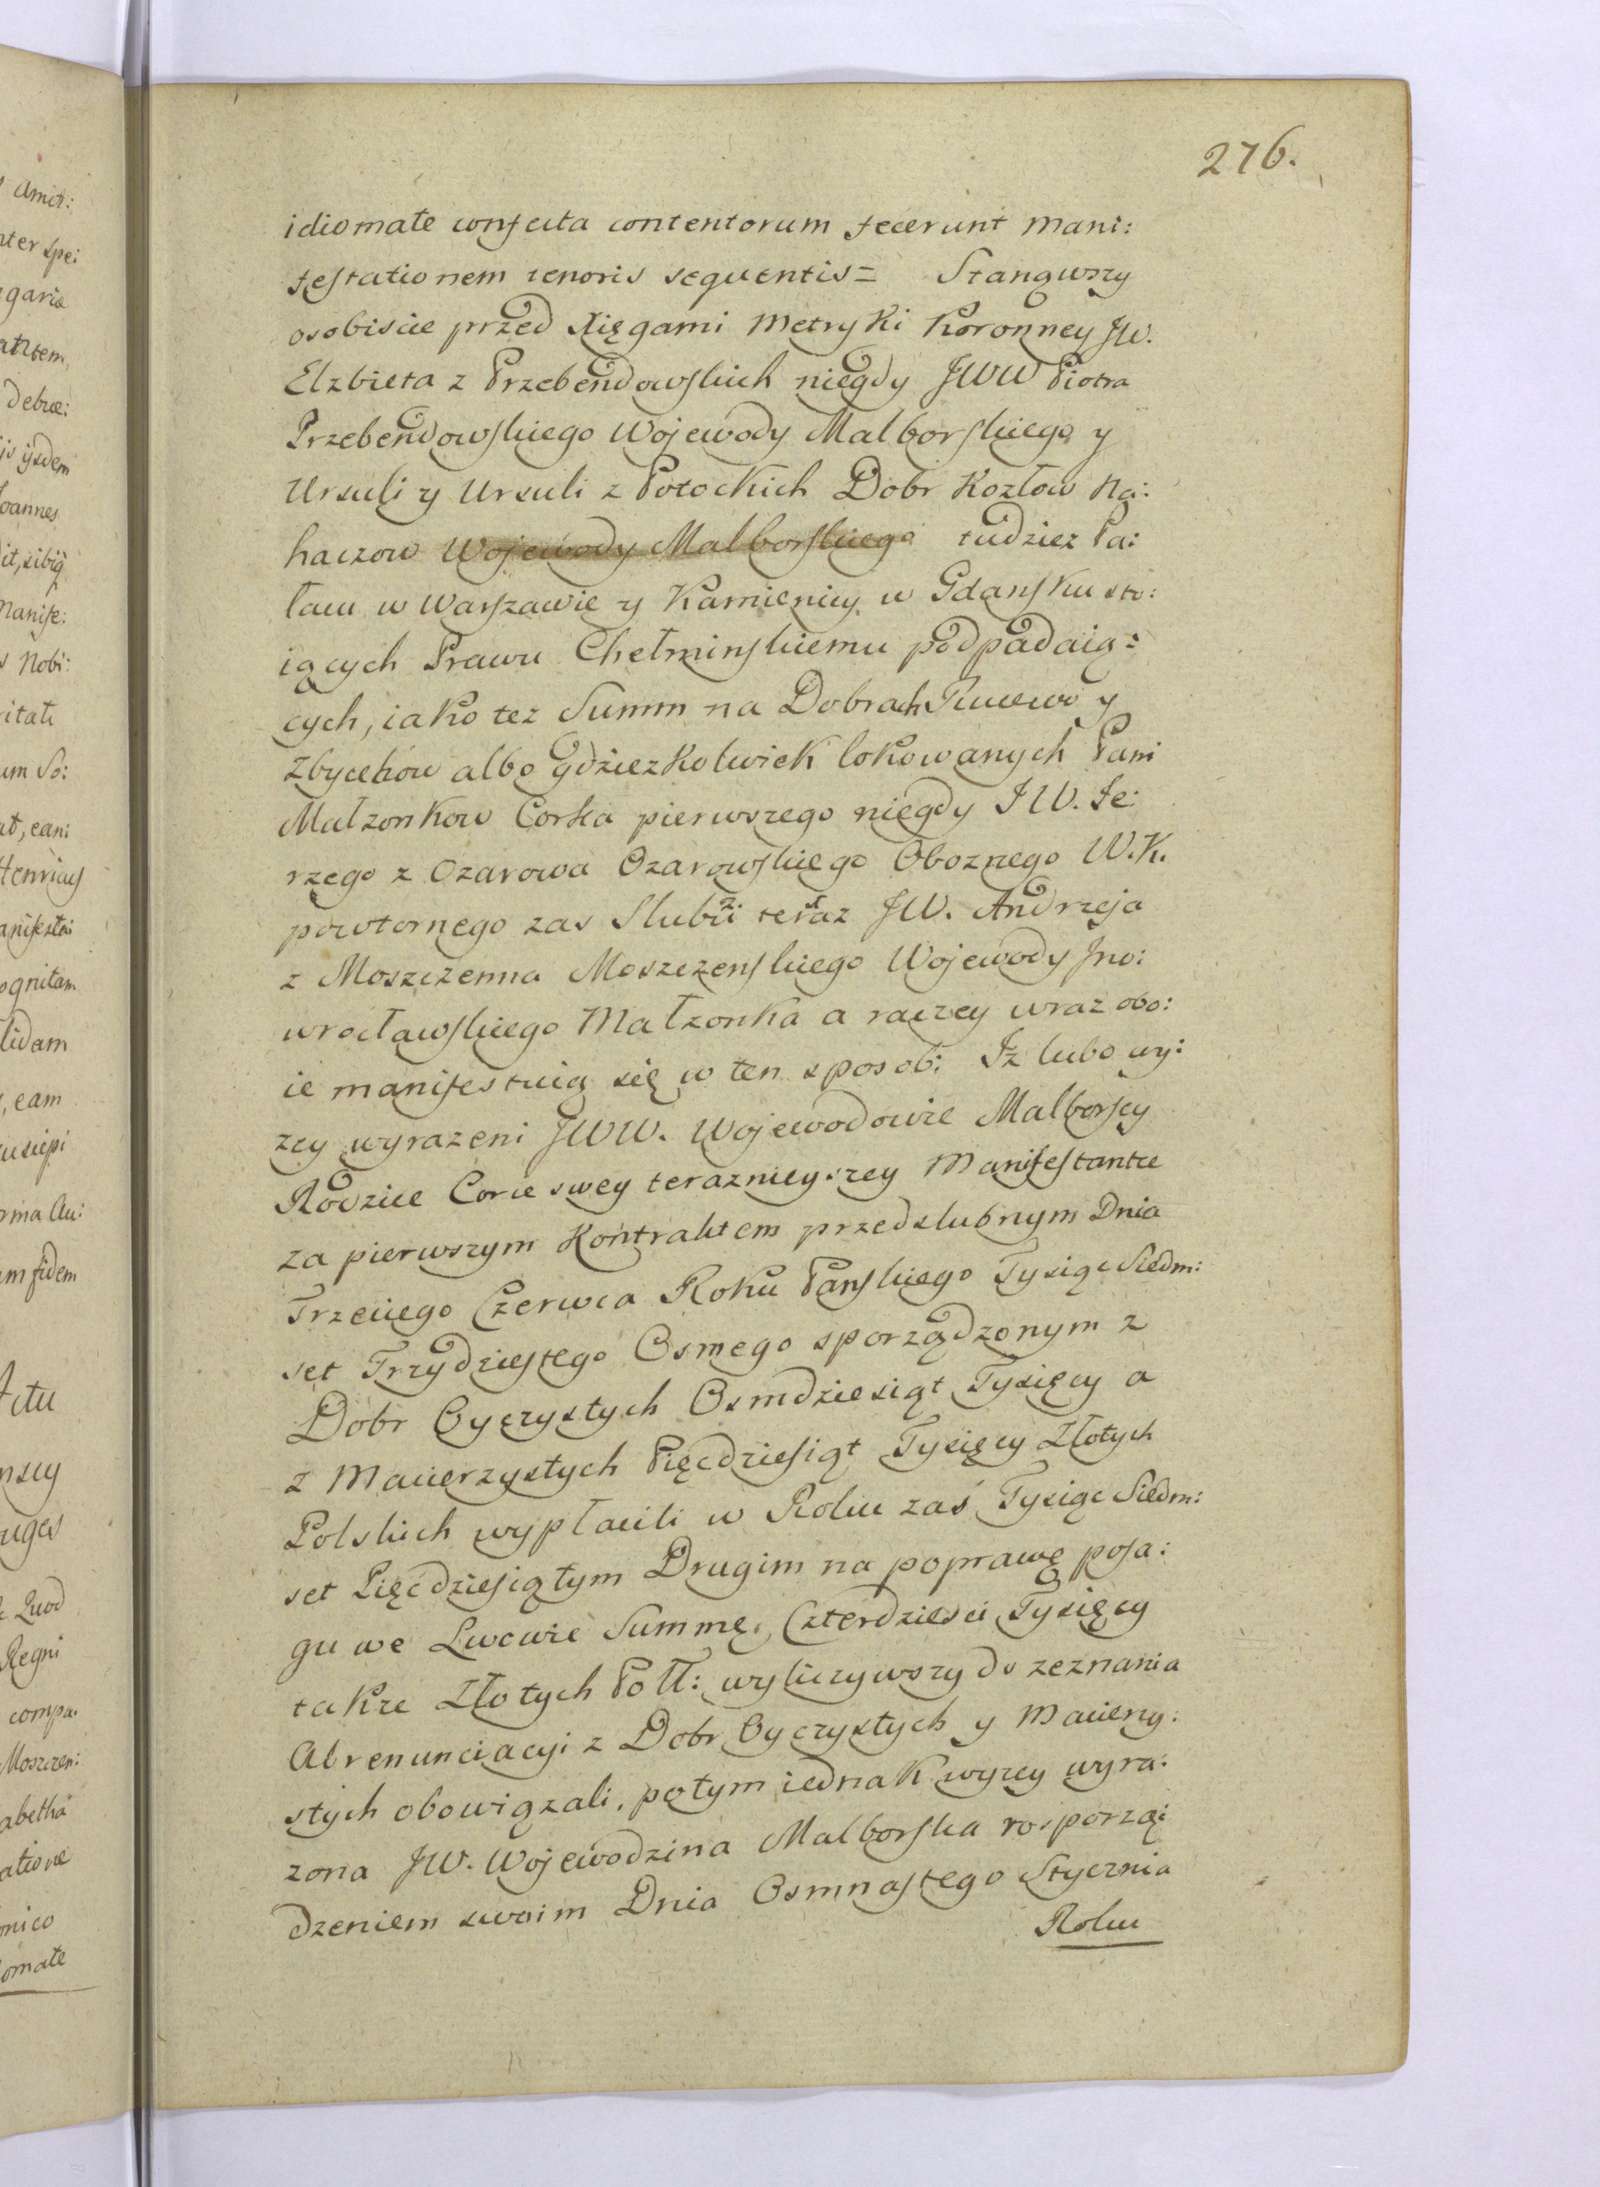 276.
idiomate confecta contentorum fecerunt Mani:
festationem tenoris sequentis= Stanąwszy
osobiscie przed Xięgami Metryki Koronney JW.
Elzbieta z Przebendowskich niegdy JWW Piotra
Przebendowskiego Wojewody Malborskiego y
Ursuli y Ursuli z Potockich Dobr Kozłow Na:
haczow Wojewody Malborskiego tudziez Pa:
łacu w Warszawie y Kamienicy w Gdansku sto:
iących Prawu Chełminskiemu podpadaią:
cych, iako tez Summ na Dobrach Rucewo y
Zbychow albo gdziezkolwiek lokowanych Pani
Małzonkow Corka pierwszego niegdy JW. Je:
rzego z Ozarowa Ozarowskiego Oboznego W.K.
powtornego zas Slubu teraz JW. Andrzeja
z Moszczenna Moszczenskiego Wojewody Jno:
wrocławskiego Małzonka a raczey wraz obo:
ie manifestuią się w ten sposob: Iz lubo wy:
zey wyrazeni JWW. Wojewodowie Malborscy
Rodzice Corce swey terazniey.szey Manifestantce
za pierwszym Kontraktem przedslubnym Dnia
Trzeciego Czerwca Roku Panskiego Tysiąc Siedm:
set Trzydziestego Osmego sporządzonym z
Dobr Oyczystych Osmdziesiąt Tysięcy a
z Macierzystych Pięcdziesiąt Tysięcy Złotych
Polskich wypłacili w Roku zaś Tysiąc Siedm:
set Pięćdziesiątym Drugim na poprawę posa:
gu we Lwowie Summę Czterdziesci Tysięcy
takze Złotych Poll: wyliczywszy do zeznania
Abrenunciacyi z Dobr Oyczystych y Macierzy:
stych obowiązali, potym iednak wyzey wyra:
zona JW. Wojewodzina Malborska rosporzą:
dzeniem swoim Dnia Osmnastego Stycznia
Roku